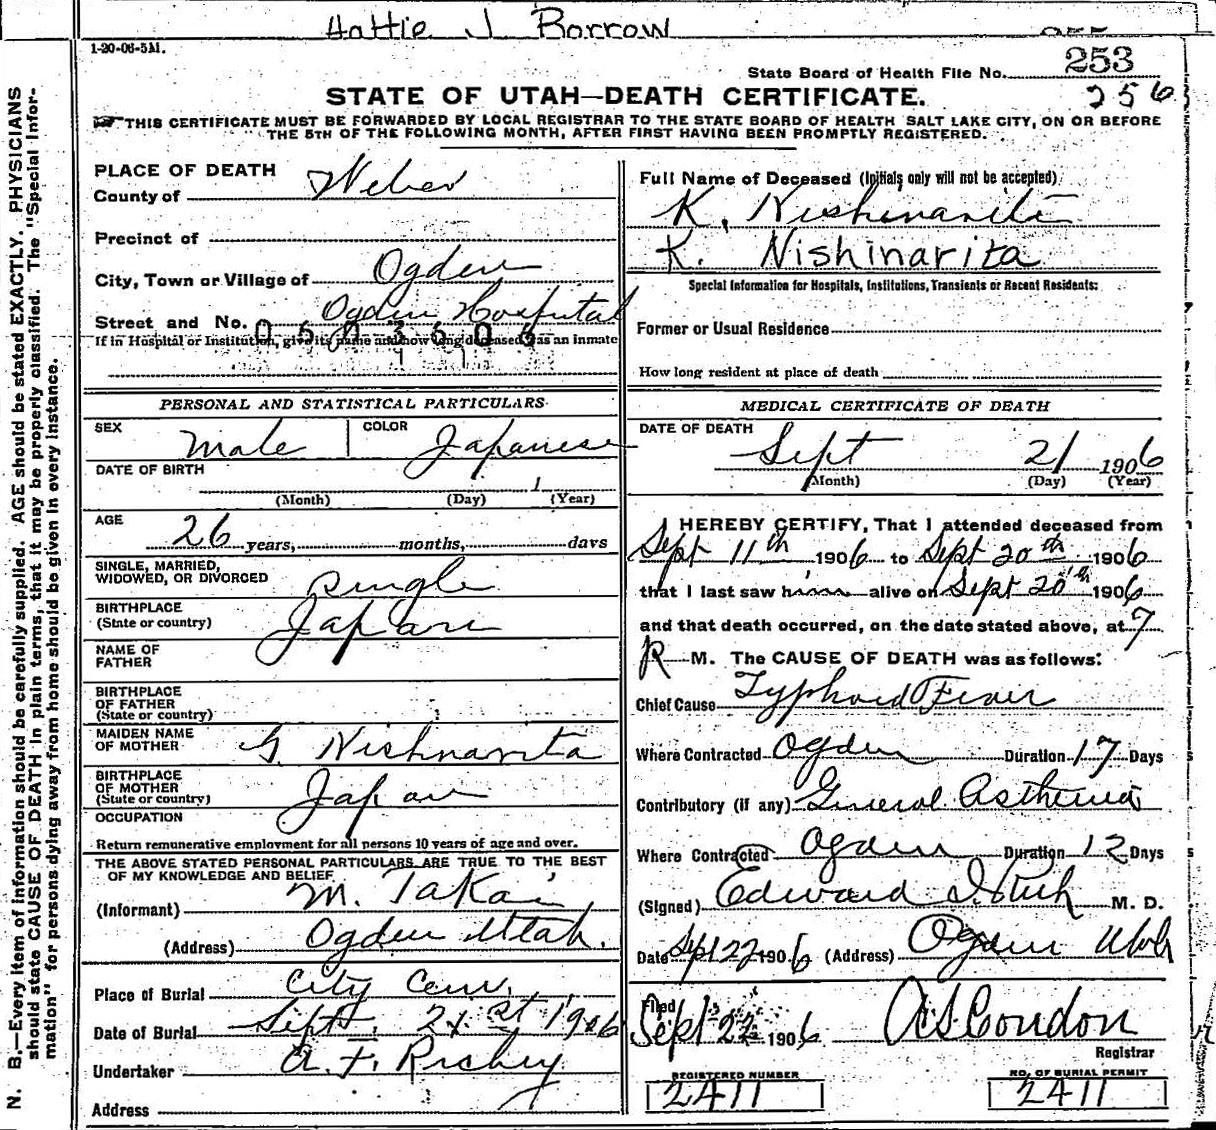 Hattie J Borrow
1-20-06-5M.
State Board of Health File No. 253
256
STATE OF UTAH—DEATH CERTIFICATE.
THIS CERTIFICATE MUST BE FORWARDED BY LOCAL REGISTRAR TO THE STATE BOARD OF HEALTH SALT LAKE CITY, ON OR BEFORE
THE 5TH OF THE FOLLOWING MONTH, AFTER FIRST HAVING BEEN PROMPTLY REGISTERED.
N. B.—Every item of information should be carefully supplied. AGE should be stated EXACTLY. PHYSICIANS
should state CAUSE OF DEATH in plain terms, that it may be properly classified. The "Special Infor-
mation" for persons dying away from home should be given in every instance.
PLACE OF DEATH
County of Weber
Precinct of
City, Town or Village of Ogden
Street and No. Ogden Hospital
If in Hospital or Institution, give its name and how long deceased was an inmate
PERSONAL AND STATISTICAL PARTICULARS
SEX Male COLOR Japanese
DATE OF BIRTH
(Month) (Day) 1 (Year)
AGE
26 years, months, days
SINGLE, MARRIED,
WIDOWED, OR DIVORCED single
BIRTHPLACE
(State or country) Japan
NAME OF
FATHER
BIRTHPLACE
OF FATHER
(State or country)
MAIDEN NAME
OF MOTHER G. Nishnarita
BIRTHPLACE
OF MOTHER
(State or country) Japan
OCCUPATION
Return remunerative employment for all persons 10 years of age and over.
THE ABOVE STATED PERSONAL PARTICULARS ARE TRUE TO THE BEST
OF MY KNOWLEDGE AND BELIEF
(Informant) M. Takai
(Address) Ogden Utah.
Place of Burial City Cem.
Date of Burial Sept. 21st 1906
Undertaker A. F. Richey
Address
Full Name of Deceased (Initials only will not be accepted)
K. Nishinarita
K. Nishinarita
Special Information for Hospitals, Institutions, Transients or Recent Residents:
Former or Usual Residence
How long resident at place of death
MEDICAL CERTIFICATE OF DEATH
DATE OF DEATH
Sept 21 1906
(Month) (Day) (Year)
I HEREBY CERTIFY, That I attended deceased from
Sept 11th 1906 to Sept 20th 1906
that I last saw him alive on Sept 20th 1906
and that death occurred, on the date stated above, at 7
P M. The CAUSE OF DEATH was as follows:
Chief Cause Typhoid Fever
Where Contracted Ogden Duration 17 Days
Contributory (if any) General Asthenia
Where Contracted Ogden Duration 12 Days
(Signed) Edward I. Rich M. D.
Date Sept 22 1906 (Address) Ogden Utah
Filed
Sept 22 1906 A S Condon
Registrar
REGISTERED NUMBER
2411
NO. OF BURIAL PERMIT
2411